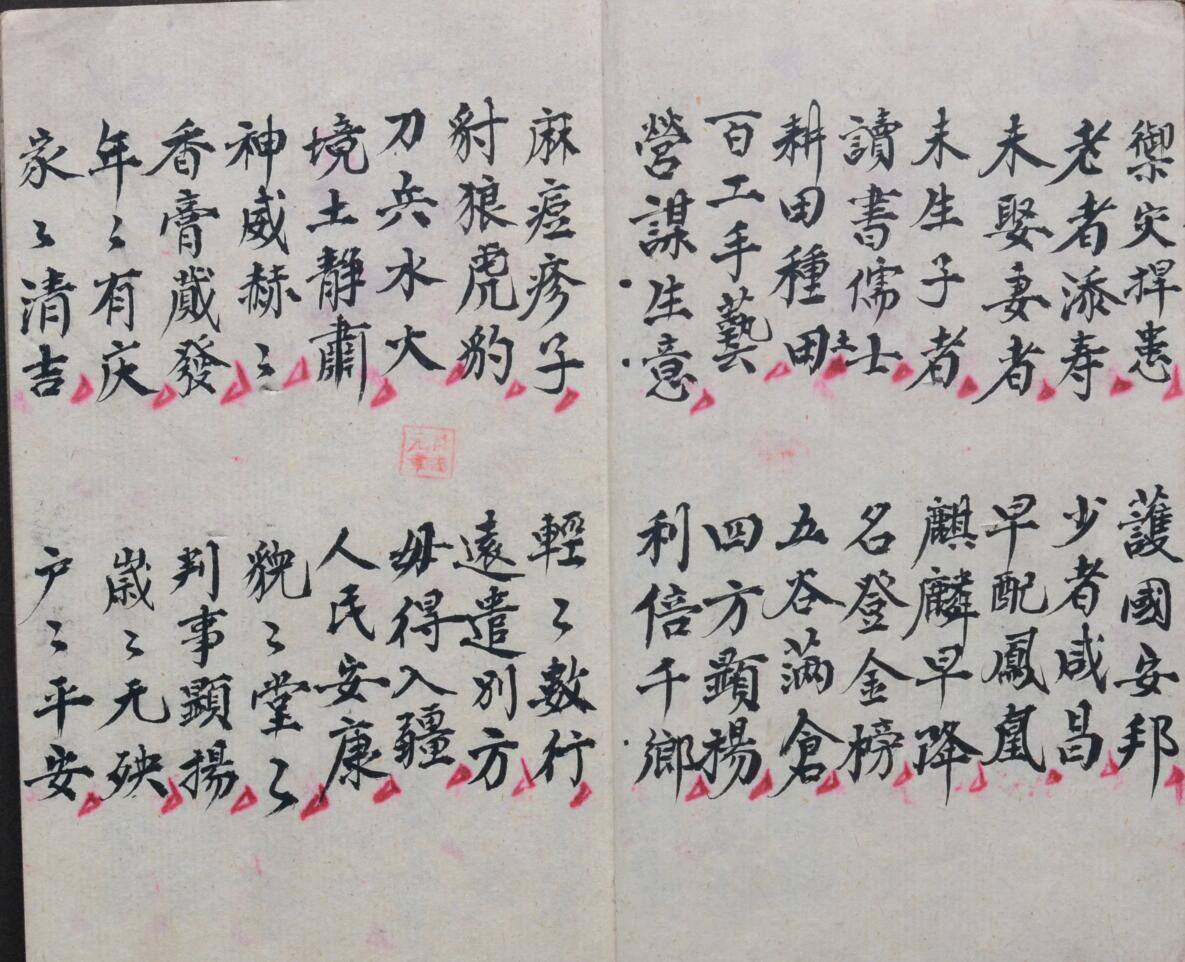 禦灾捍患
護國安邦
老者添寿
少者咸昌
未娶妻者
早配鳳凰
未生子者
麒麟早降
讀書儒士
名登金榜
耕田種田土
五谷滿倉
百工手藝
四方顕揚
營謀生意
利倍千鄉
麻痘疹子
輕〻數行
豺狼虎豹
遠遣別方
刀兵水火
毋得入疆
境土静肅
人民安康
神威赫〻
貌〻堂〻
香膏蔵發
判事顕揚
年〻有庆
嵗〻无殃
家〻清吉
户〻平安